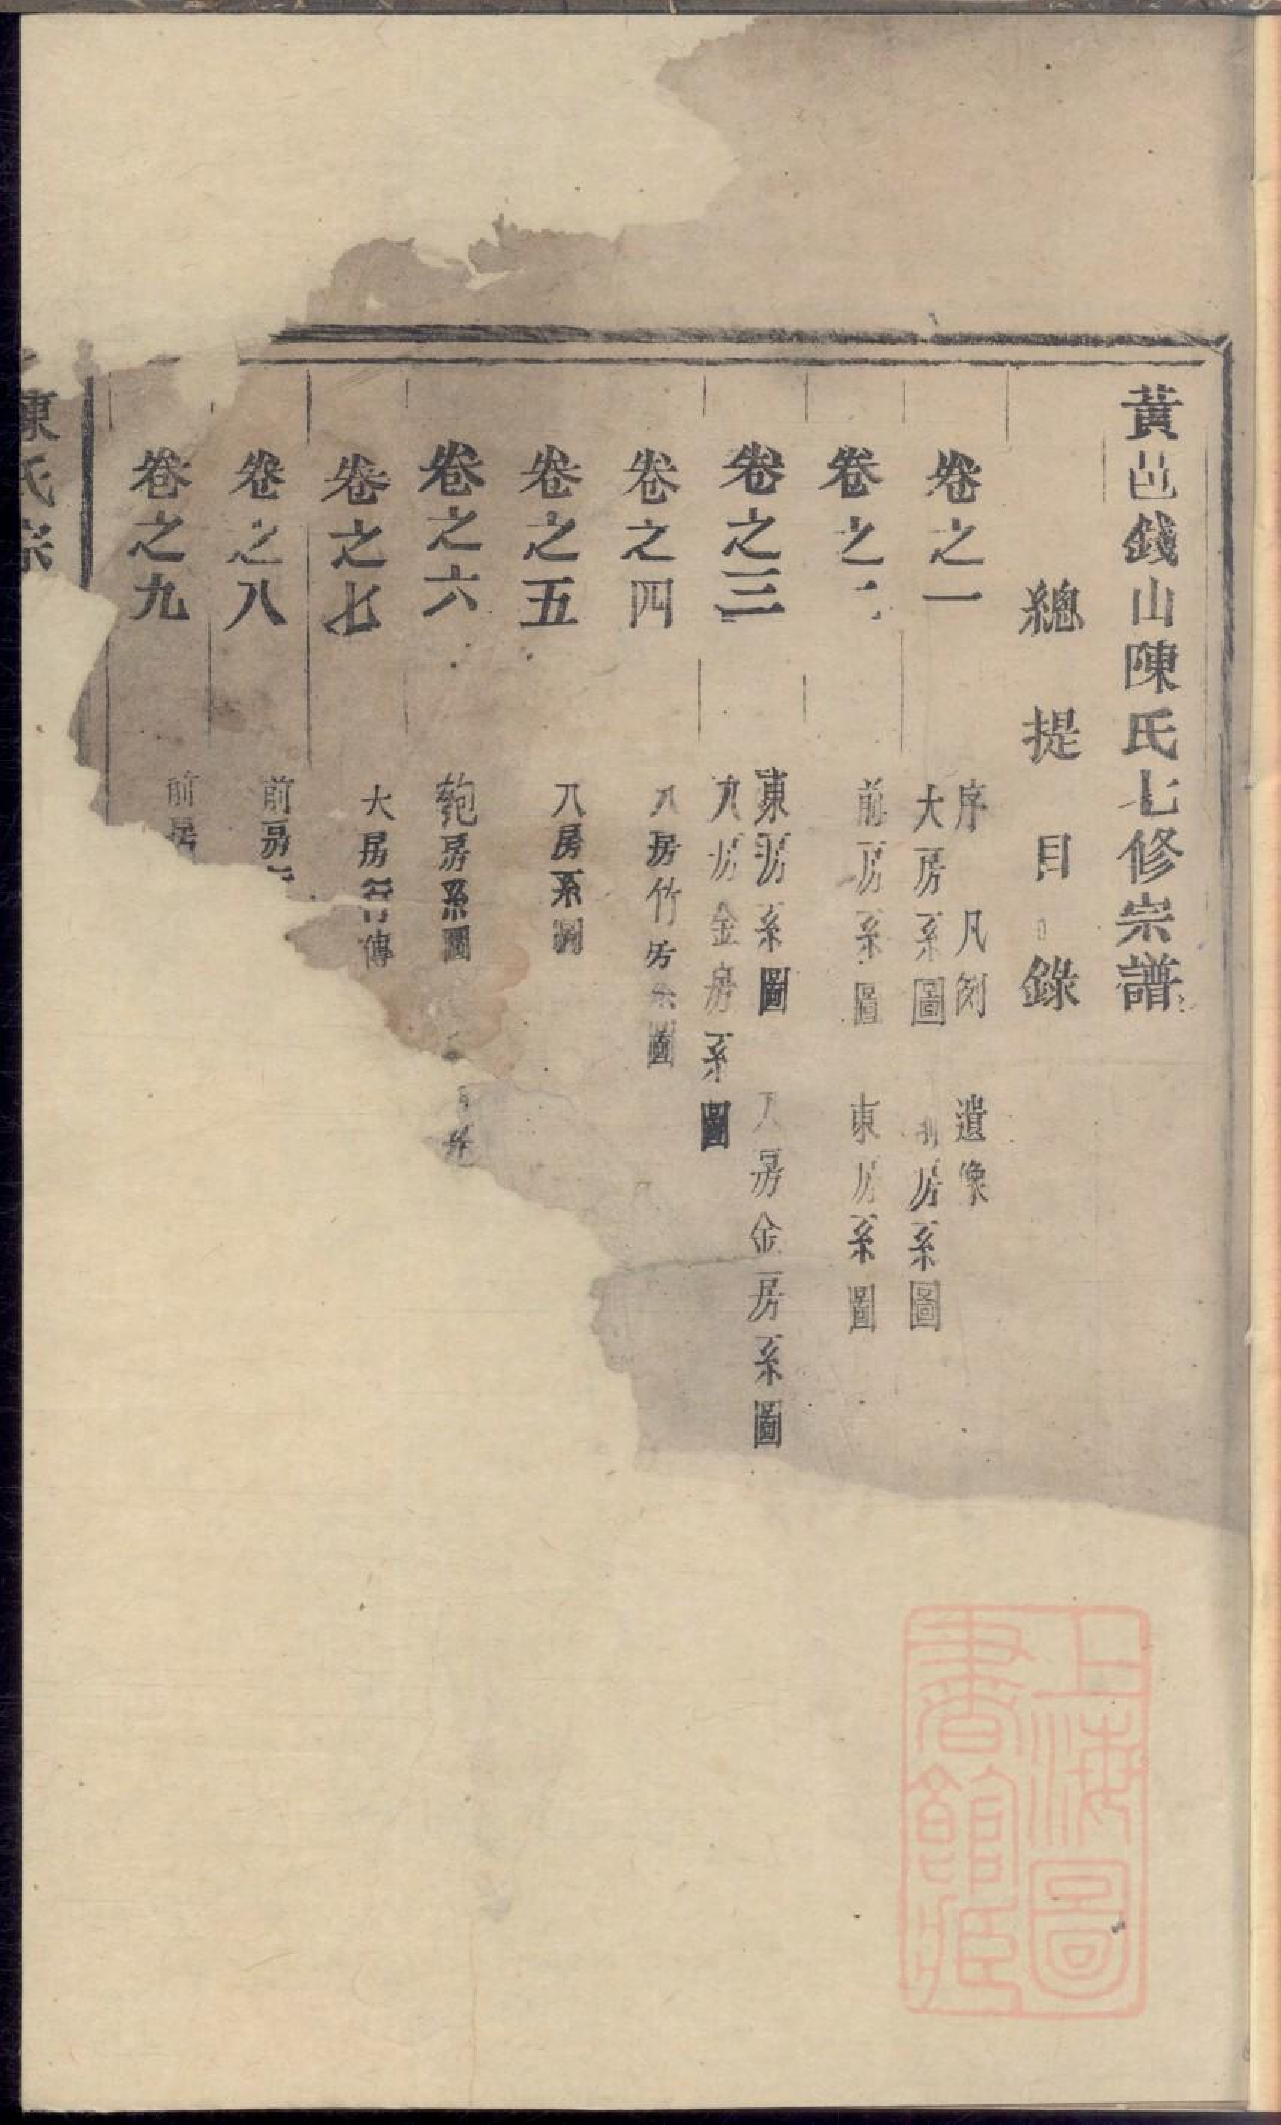 黃邑錢山陳氏七修宗譜
總提目錄
卷之一
序 凡例 遺像
大房系圖 房系圖
卷之二
前房系圖 東房系圖
卷之三
東房系圖 八房金房系圖
九房金房系圖
卷之四
八房竹房系圖
卷之五
八房系圖
卷之六
房系圖
卷之七
大房 傳
卷之八
前房
卷之九
前房
陳氏宗
上海圖書館藏